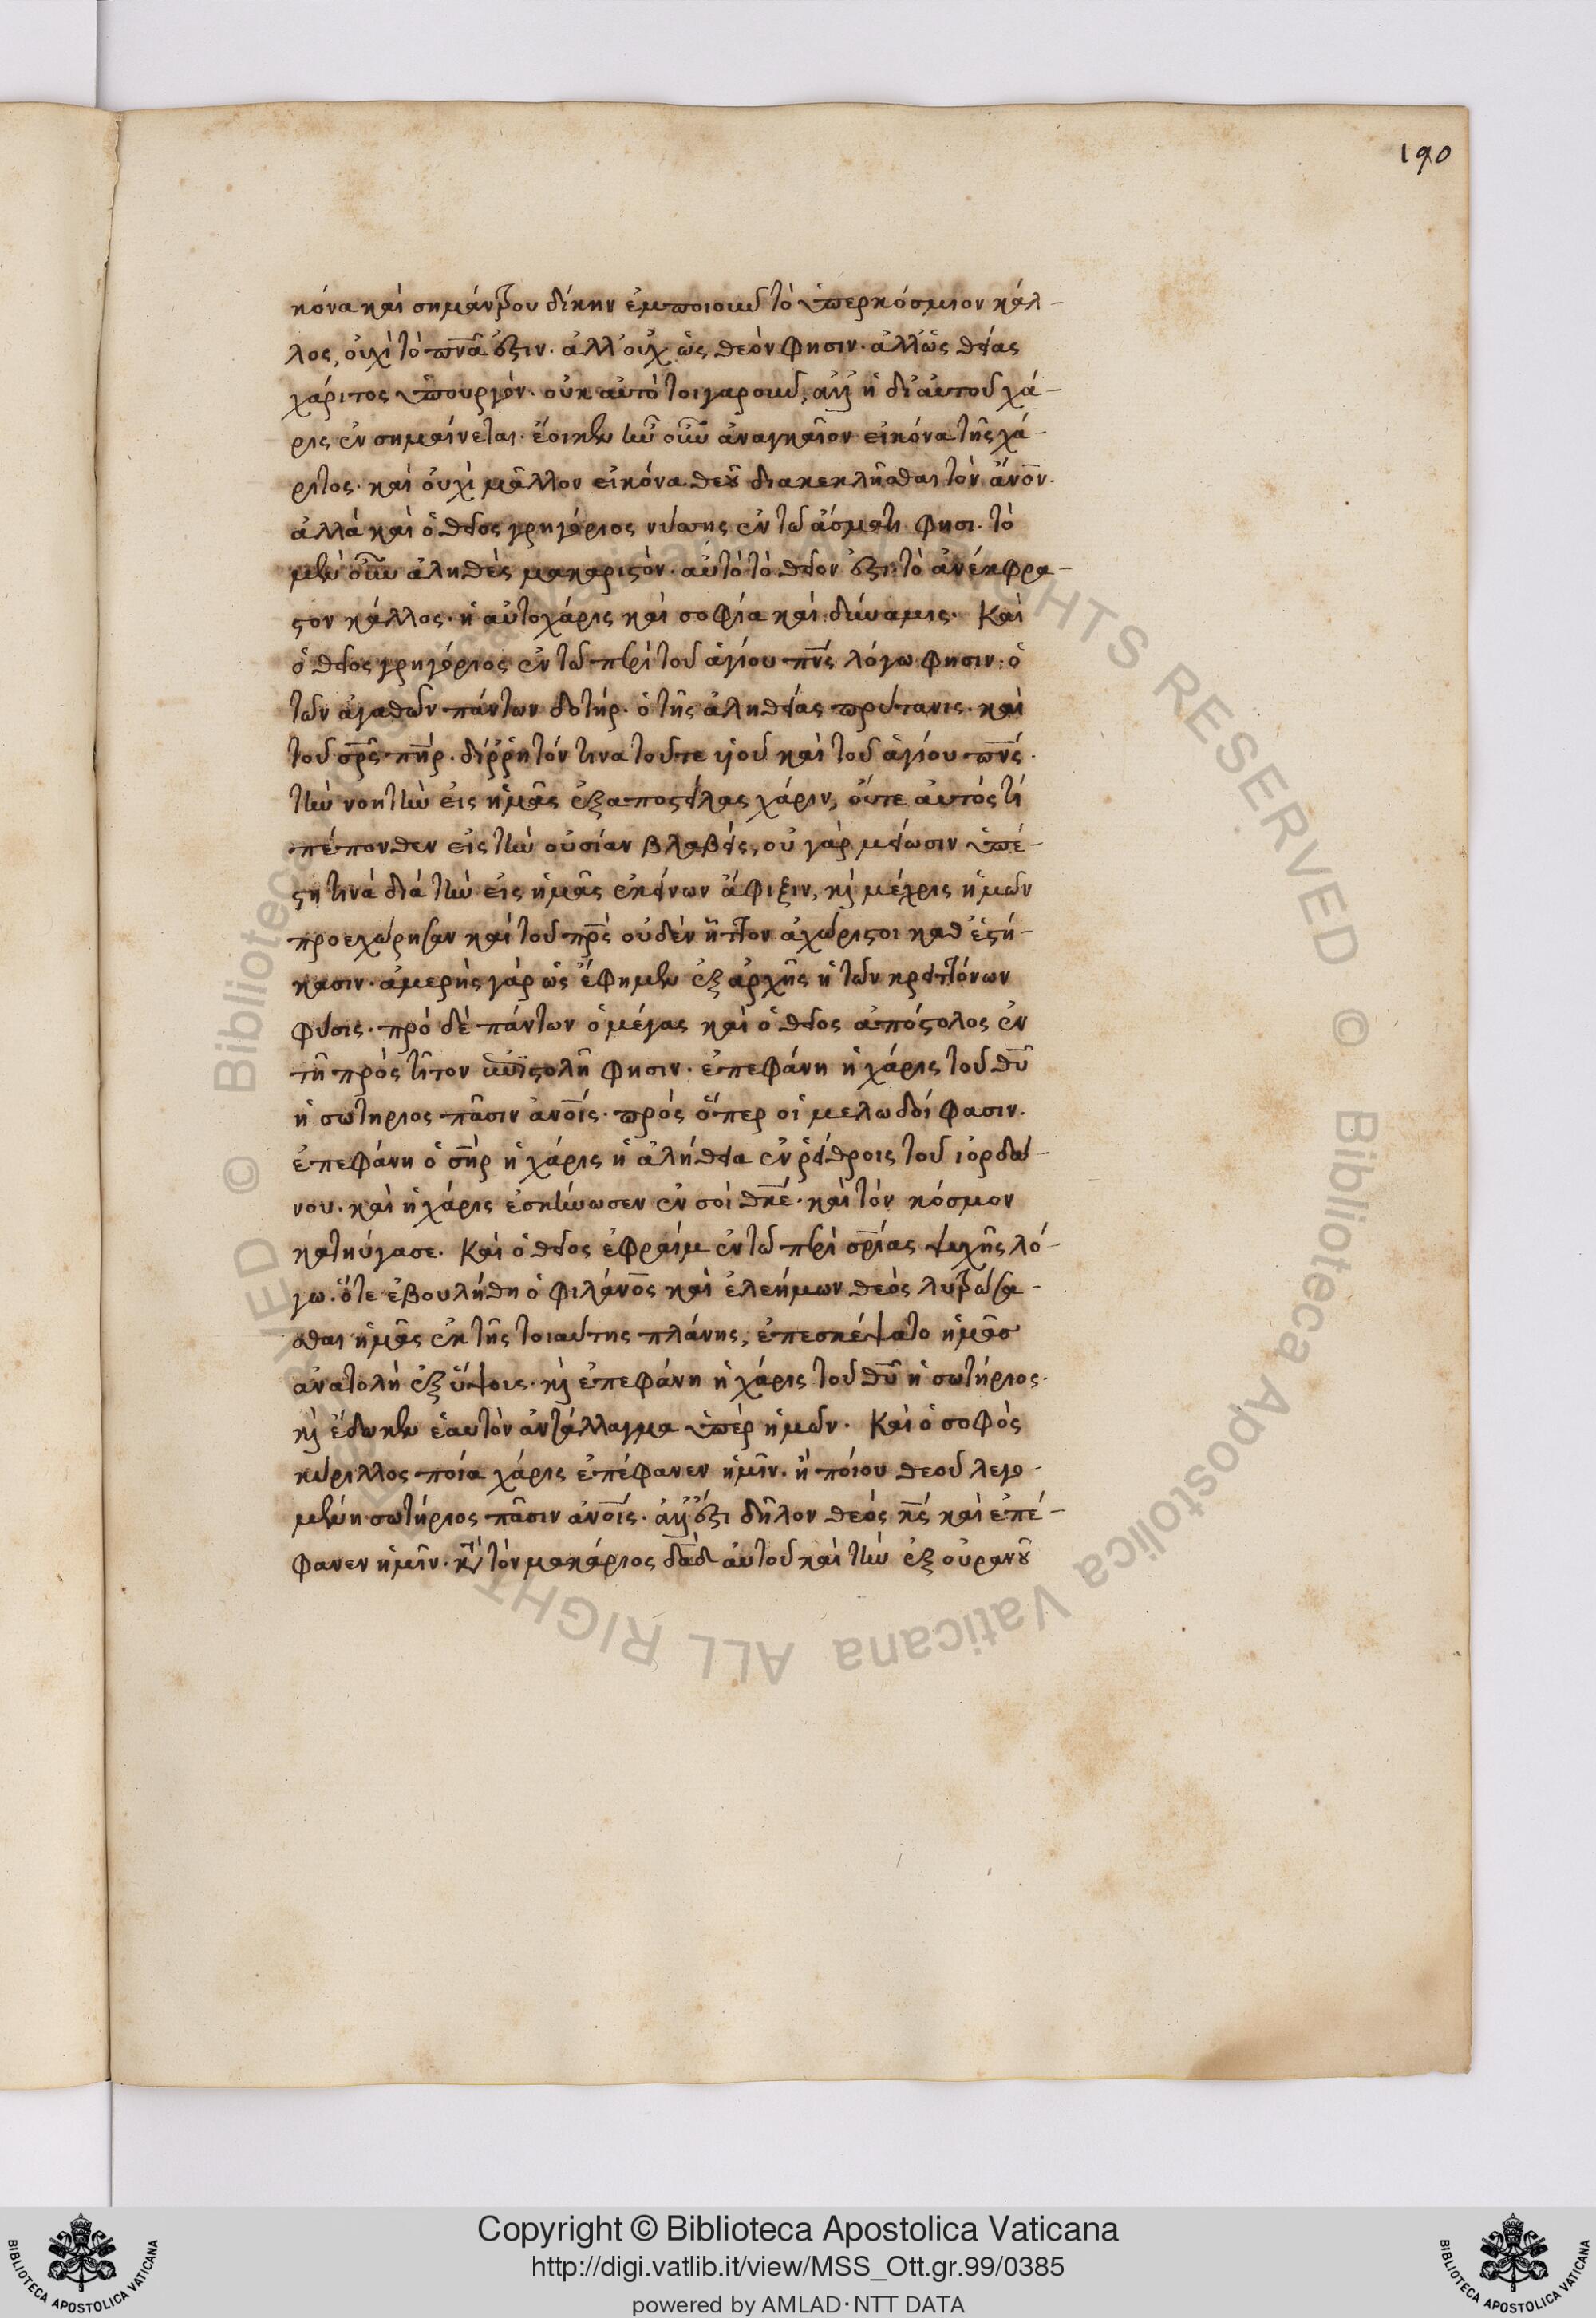 190
κόνα καὶ σημάντρου δίκην ἐμποιοῦν τὸ ὑπερκόσμιον κάλ-
λος, οὐχὶ τὸ πνᾶ ἐστιν. ἀλλ' οὐχ ὡς θεὸν φησιν. ἀλλ' ὡς θείας
χάριτος ὑπουργόν. οὐκ αὐτὸ τοιγαροῦν, ἀλλ' ἡ δι' αὐτοῦ χά-
ρις ἐνσημαίνεται. ἔοικεν ἦν οὖν ἀναγκαῖον εἰκόνα τῆς χά-
ριτος. καὶ οὐχὶ μᾶλλον εἰκόνα θεοῦ διακεκλῆσθαι τὸν ἄνον.
ἀλλὰ καὶ ὁ θεῖος γρηγόριος νύσσης ἐν τῶ ἄσματι φησι. τὸ
μὲν οὖν ἀληθὲς μακαριστὸν. αὐτὸ τὸ θεῖον ἐστι τὸ ἀνέκφρα-
στον κάλλος. ἡ αὐτοχάρις καὶ σοφία καὶ δύναμις. Καὶ
ὁ θεῖος γρηγόριος ἐν τῶ περὶ τοῦ ἁγίου πνς λόγω φησιν: ὁ
τῶν ἀγαθῶν πάντων δοτήρ. ὁ τῆς ἀληθείας πρύτανις. καὶ
τοῦ σρς πηρ. δι' ἄρρητόν τινα τοῦτε υἱοῦ καὶ τοῦ ἁγίου πνς.
τὴν νοητὴν εἰς ἡμᾶς ἐξαποστείλας χάριν, οὔτε αὐτός τί
πέπονθεν εἰς τὴν οὐσίαν βλαβείς, οὐ γὰρ μείωσιν ὑπέ-
στη τινὰ διὰ τὴν εἰς ἡμᾶς ἐκείνων ἄφιξιν, καὶ μέχρις ἡμῶν
προεχώρησαν καὶ τοῦ πρς οὐδὲν ἧττον ἀχώριστοι καθ ἑστή-
κασιν. ἀμερὴς γὰρ ὡς ἔφημεν ἐξ ἀρχῆς ἡ τῶν κρειττόνων
φύσις. πρὸ δὲ πάντων ὁ μέγας καὶ ὁ θεῖος ἀπόστολος ἐν
τῆ πρὸς τῖτον ἐπιστολῆ φησιν. ἐπεφάνη ἡ χάρις τοῦ θυ
ἡ σωτηριος πᾶσιν ἀνοις. πρὸς ὅπερ οἱ μελωδοί φασιν.
ἐπεφάνη ὁ σηρ ἡ χάρις ἡ ἀλήθεια ἐν ῥείθροις τοῦ ἰορδά-
νου. καὶ ἡ χάρις ἐσκήνωσεν ἐν σοὶ θκε. καὶ τὸν κόσμον
κατηύγασε. Καὶ ὁ θεῖος ἐφραίμ ἐν τῶ περὶ σριας ψυχῆς λό-
γω. ὅτε ἐβουλήθη ὁ φιλάνος καὶ ἐλεήμων θεὸς λυτρώσα-
σθαι ἡμᾶς ἐκ τῆς τοιαύτης πλάνης, ἐπεσκέψατο ἡμᾶς
ἀνατολὴ ἐξ ὕψους. καὶ ἐπεφάνη ἡ χάρις τοῦ θυ ἡ σωτήριος.
καὶ ἔδωκεν ἑαυτὸν ἀντάλλαγμα ὑπὲρ ἡμῶν. Καὶ ὁ σοφὸς
κύριλλος ποία χάρις ἐπέφανεν ἡμῖν. ἢ ποίου θεοῦ λεγο-
μένη σωτήριος πᾶσιν ἀνοις. ἀλλ' ἔστι δῆλον θεός κς καὶ ἐπέ-
φανεν ἡμῖν. τὸν μακάριος δαδ αὐτοῦ καὶ τὴν ἐξ οὐρανοῦ
Copyright © Biblioteca Apostolica Vaticana
http://digi.vatlib.it/view/MSS_Ott.gr.99/0385
powered by AMLAD·NTT DATA